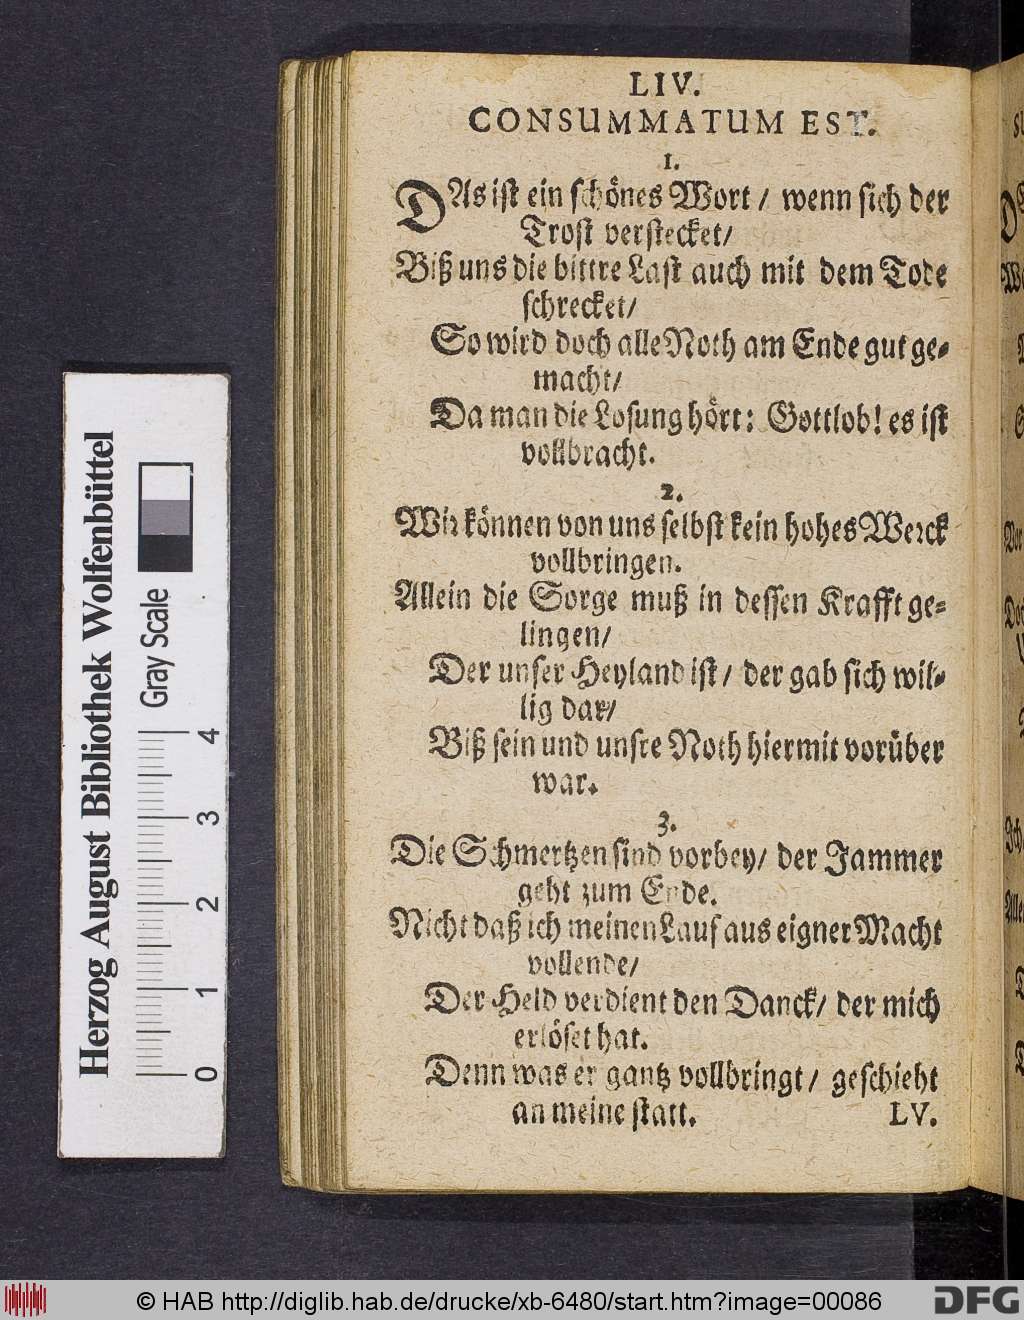 LIV.
CONSUMMATUM EST.
1.
DAs ist ein schönes Wort / wenn sich der
Trost verstecket/
Biß uns die bittre Last auch mit dem Tode
schrecket/
So wird doch alle Noth am Ende gut ge-
macht/
Da man die Losung hört: Gottlob! es ist
vollbracht.
2.
Wir können von uns selbst kein hohes Werck
vollbringen.
Allein die Sorge muß in dessen Krafft ge-
lingen/
Der unser Heyland ist/ der gab sich wil-
lig dar/
Biß sein und unsre Noth hiermit vorüber
war.
3.
Die Schmertzen sind vorbey/ der Jammer
geht zum Ende.
Nicht daß ich meinen Lauf aus eigner Macht
vollende/
Der Held verdient den Danck/ der mich
erlöset hat.
Denn was er gantz vollbringt/ geschieht
an meine statt.
LV.
Herzog August Bibliothek Wolfenbüttel
Gray Scale
0 1 2 3 4
© HAB http://diglib.hab.de/drucke/xb-6480/start.htm?image=00086
DFG